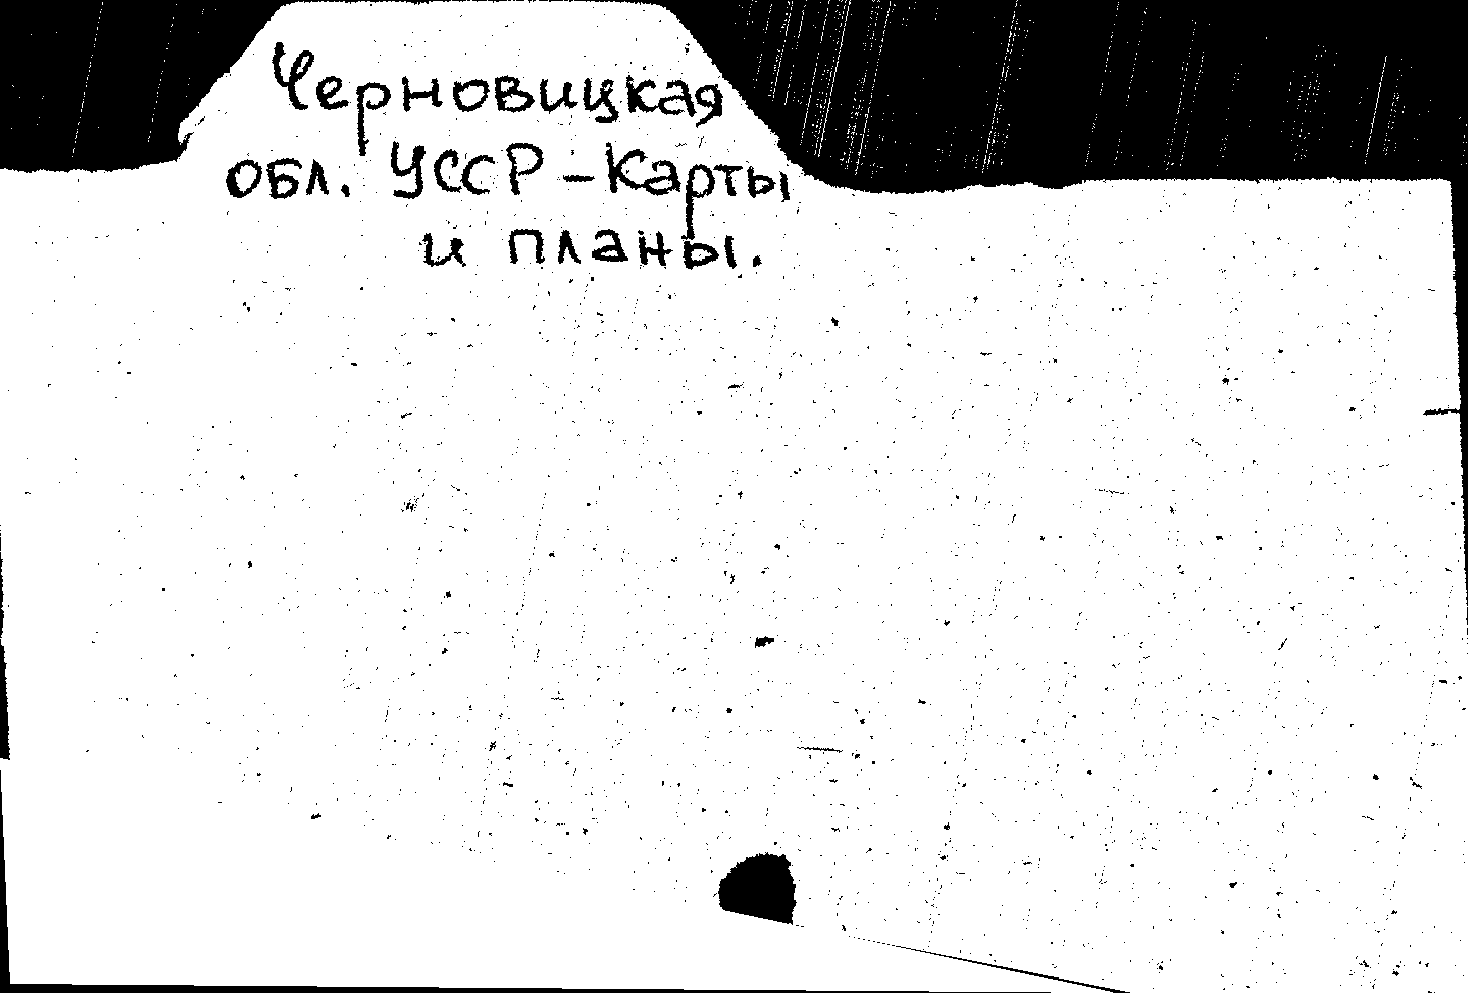 Черновицкая
обл. УССР - Карты
и планы.